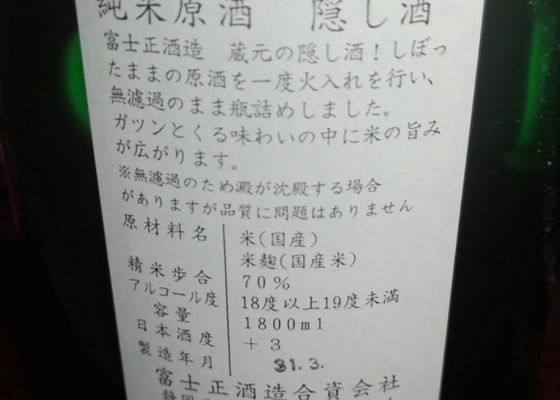 純米原酒 隠し酒
富士正酒造 蔵元の隠し酒!しぼっ
たままの原酒を一度火入れを行い、
無濾過のまま瓶詰めしました。
ガツンとくる味わいの中に米の旨み
が広がります。
※無濾過のため澱が沈殿する場合
がありますが品質に問題はありません
原材料名 米(国産)
米麹(国産米)
精米歩合 70%
アルコール度 18度以上19度未満
容量 1800ml
日本酒度 +3
製造年月 31.3.
富士正酒造合資会社
静岡